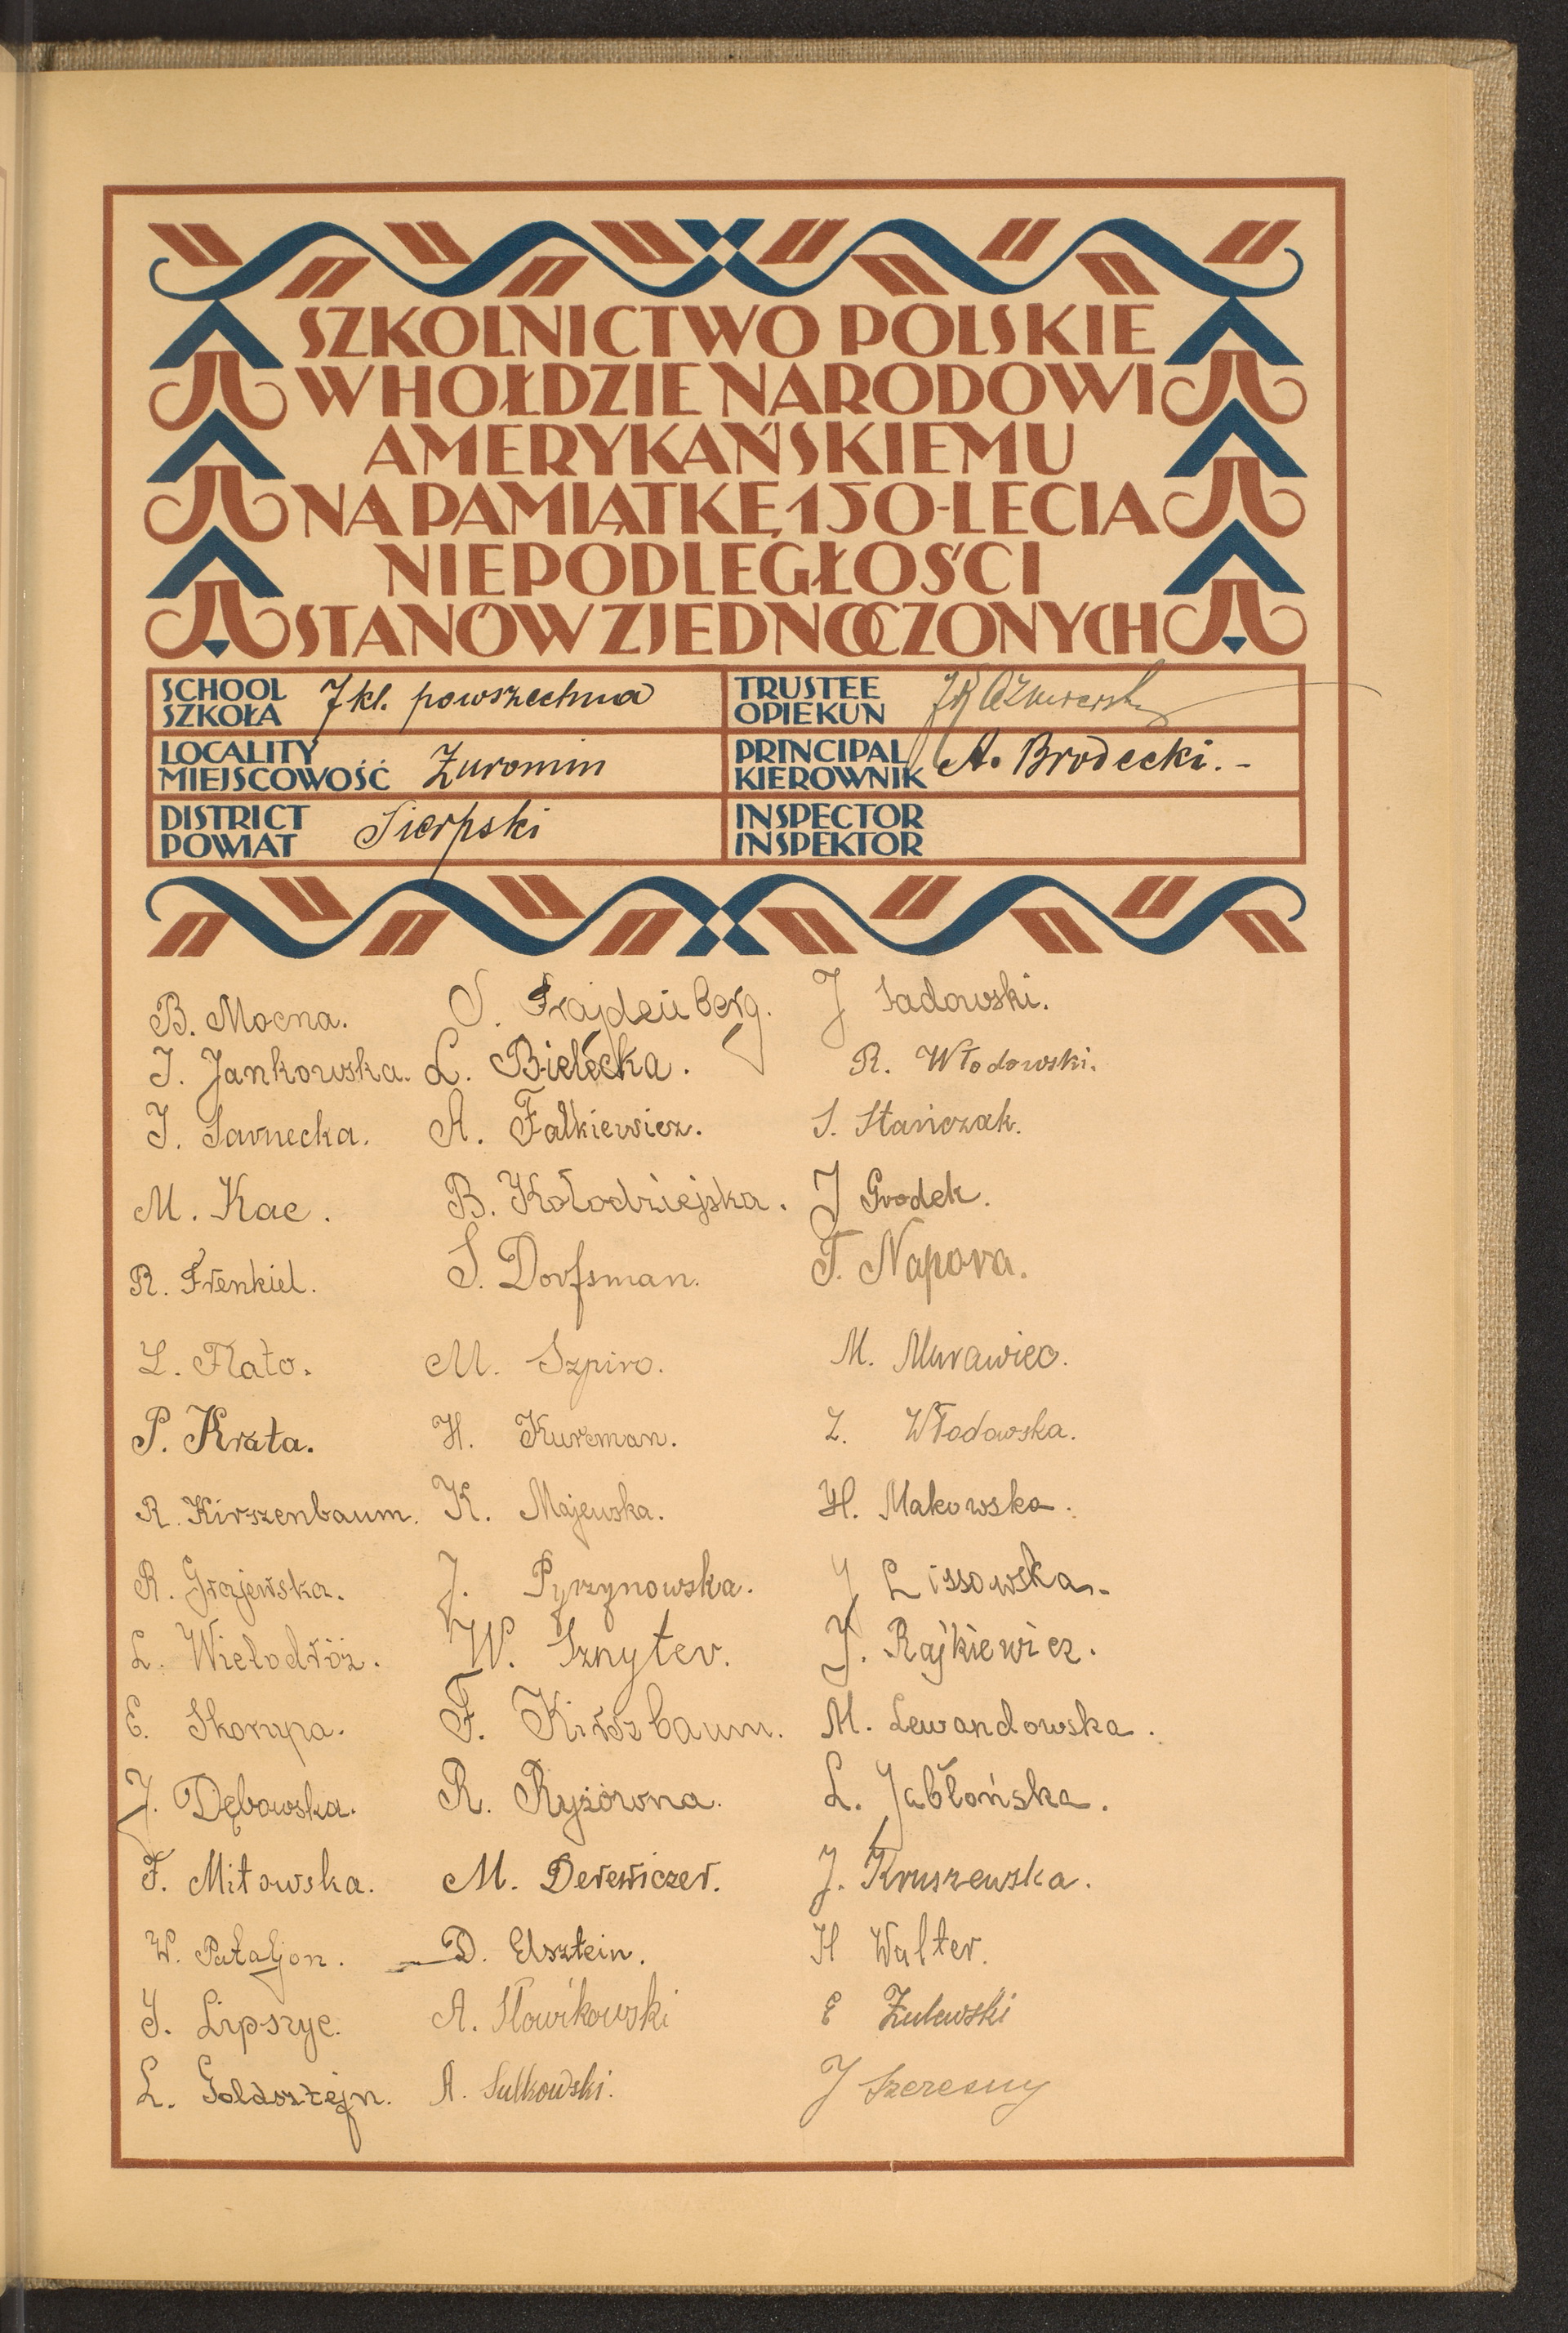 SZKOLNICTWO POLSKIE
W HOŁDZIE NARODOWI
AMERYKAŃSKIEMU
NA PAMIĄTKĘ 150-LECIA
NIEPODLEGŁOŚCI
STANÓW ZJEDNOCZONYCH
SCHOOL
SZKOŁA
7 kl. powszechna
TRUSTEE
OPIEKUN
LOCALITY
MIEJSCOWOŚĆ
Żuromin
PRINCIPAL
KIEROWNIK
A. Brodecki.-
DISTRICT
POWIAT
Sierpski
INSPECTOR
INSPEKTOR
B. Mocna.
I. Jankowska.
I. Sarnecka.
M. Kac.
R. Frenkiel.
L. Flato.
P. Krata.
R. Kirszenbaum.
R. Grajewska.
L. Wielodróż.
E. Skorupa.
J. Dębowska.
F. Miłowska.
W. Pataljon.
I. Lipszyc.
L. Goldsztejn.
S. Frajdenberg.
L. Bielecka.
A. Falkiewicz.
B. Kołodziejska.
S. Dorfsman.
M. Szpiro.
H. Kurcman.
K. Majewska.
J. Pyrzynowska.
W. Sznyter.
F. Kirszbaum.
R. Ryżówna.
M. Derewiczer.
D. Elsztein.
A. Słowikowski
A. Sulkowski.
J Sadowski.
R. Włodowski.
S. Stańczak.
J Grodek.
T. Napora.
M. Murawiec.
Z. Włodowska.
H. Makowska.
J Lissowska.
J. Rajkiewicz.
M. Lewandowska.
L. Jabłońska.
J. Kruszewska.
H Walter.
E Żulewski
J Szeresny